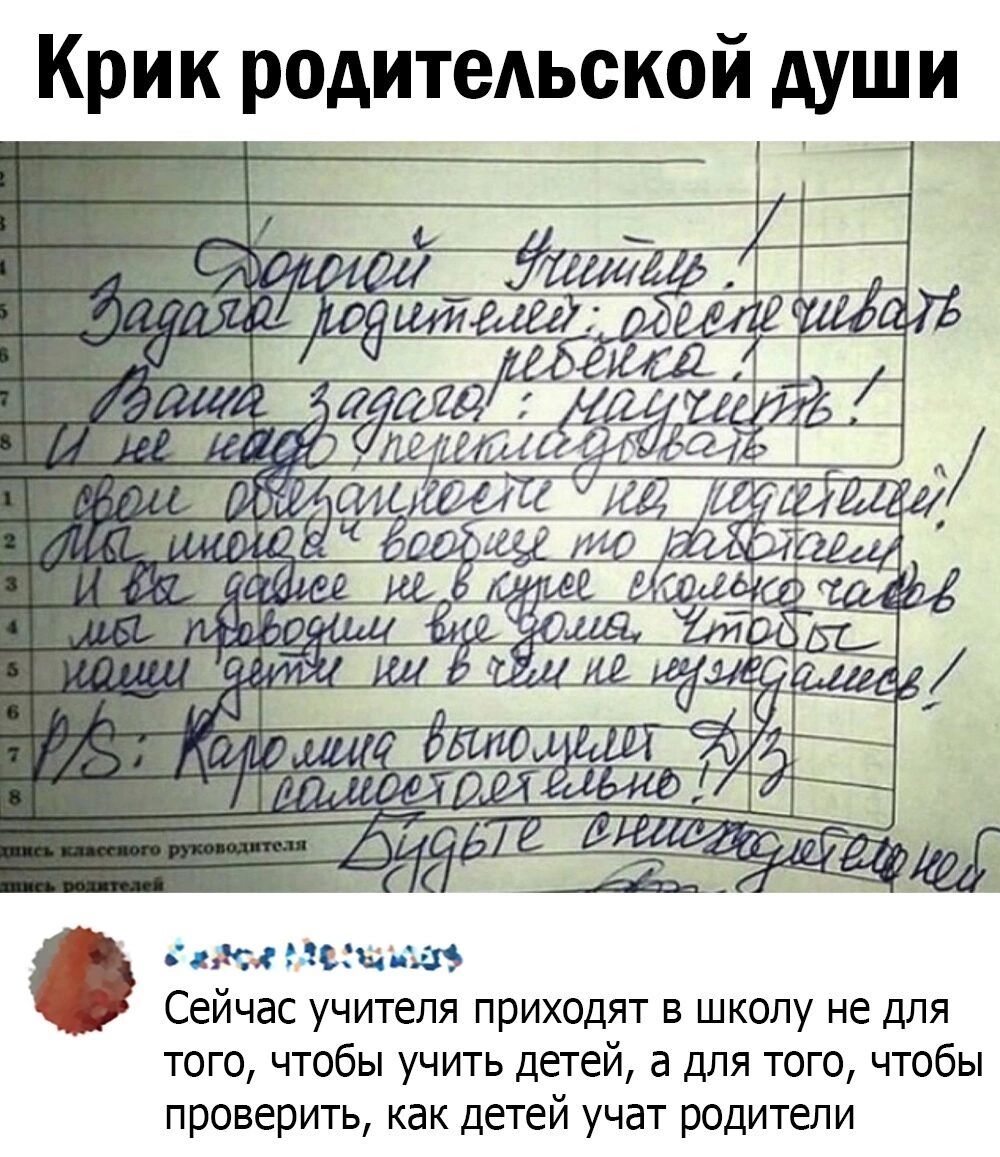 Крик родительской души
2
3
4
Дорогой Учитель!
5
Задача родителей: обеспечивать
6
ребёнка!
7
Ваша задача: научить!
8
И не надо перекладовать
1
свои обязанности на родителей!
2
Мы иногда "вообще то работаем
3
И вы даже не в курсе сколько часов
4
мы проводим вне дома, чтобы
5
наши дети ни в чём не нуждались!
6
7
P/S: Каролина выполнлет Д/З
8
самостоятельно!
дпись классного руководителя
Будьте снисходительней
дпись родителей
Сейчас учителя приходят в школу не для
того, чтобы учить детей, а для того, чтобы
проверить, как детей учат родители